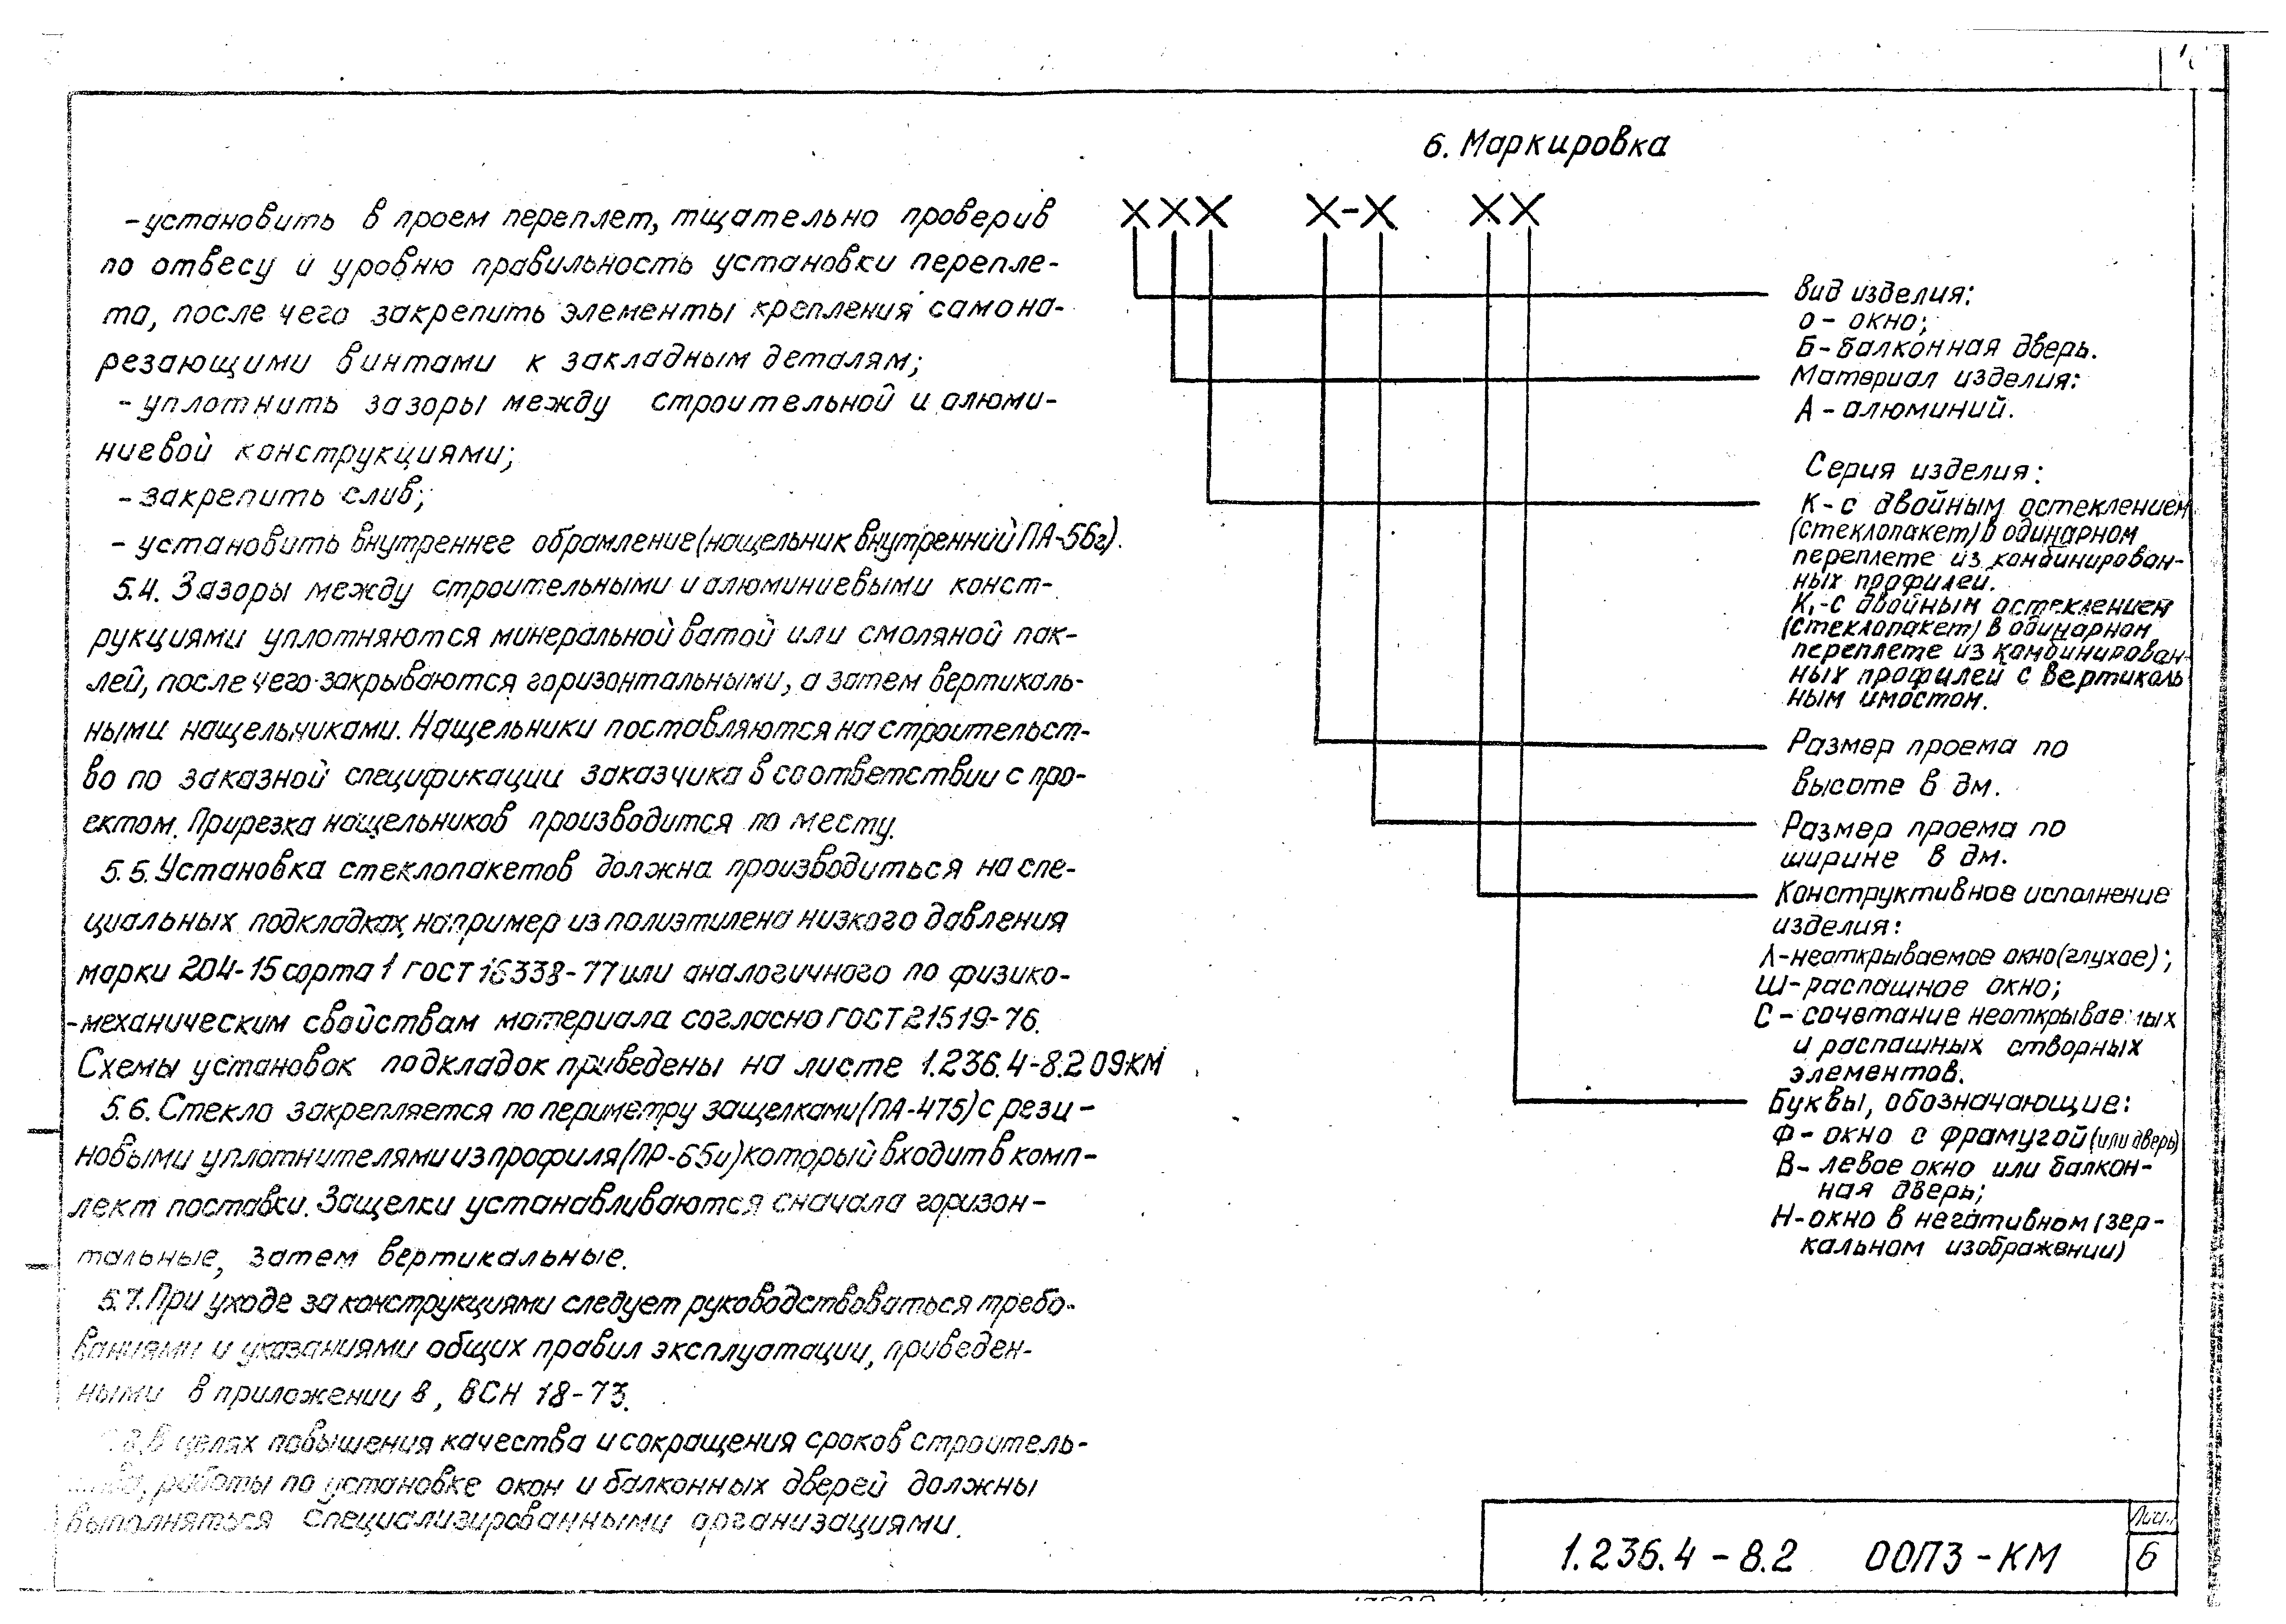 -установить в проем переплет, тщательно проверив
по отвесу и уровню правильность установки перепле-
та, после чего закрепить элементы крепления самона-
резающими винтами к закладным деталям;
-уплотнить зазоры между строительной и алюми-
ниевой конструкциями;
-закрепить слив;
-установить внутреннее обрамление (нащельник внутренний ПА-56г).
5.4. Зазоры между строительными и алюминиевыми конст-
рукциями уплотняются минеральной ватой или смоляной пак-
лей, после чего закрываются горизонтальными, а затем вертикаль-
ными нащельниками. Нащельники поставляются на строительст-
во по заказной спецификации заказчика в соответствии с про-
ектом. Прирезка нащельников производится по месту.
5.5. Установка стеклопакетов должна производиться на спе-
циальных подкладках, например из полиэтилена низкого давления
марки 204-15 сорта 1 ГОСТ 16338-77 или аналогичного по физико-
-механическим свойствам материала согласно ГОСТ 21519-76.
Схемы установок подкладок приведены на листе 1.236.4-8.2 09КМ
5.6. Стекло закрепляется по периметру защелками (ПА-475) с рези-
новыми уплотнителями из профиля (ПР-65и) который входит в комп-
лект поставки. Защелки устанавливаются сначала горизон-
тальные, затем вертикальные.
5.7. При уходе за конструкциями следует руководствоваться требо-
ваниями и указаниями общих правил эксплуатации, приведен-
ными в приложении 8, ВСН 18-73.
8. В целях повышения качества и сокращения сроков строитель-
работы по установке окон и балконных дверей должны
выполняться специализированными организациями.
6. Маркировка
XXX X-X XX
Вид изделия:
О - окно;
Б - балконная дверь.
Материал изделия:
А - алюминий.
Серия изделия:
К - с двойным остеклением
(стеклопакет) в одинарном
переплете из комбинирован-
ных профилей.
К₁-с двойным остеклением
(стеклопакет) в одинарном
переплете из комбинирован-
ных профилей с вертикаль
ным имостом.
Размер проема по
высоте в дм.
Размер проема по
ширине в дм.
Конструктивное исполнение
изделия:
Л-неоткрываемое окно (глухое);
Ш-распашное окно;
С - сочетание неоткрываемых
и распашных створных
элементов.
Буквы, обозначающие:
Ф - окно с фрамугой (или дверь)
В - левое окно или балкон-
ная дверь;
Н-окно в негативном (зер-
кальном изображении)
1.236.4-8.2 00ПЗ-КМ
Лист
6